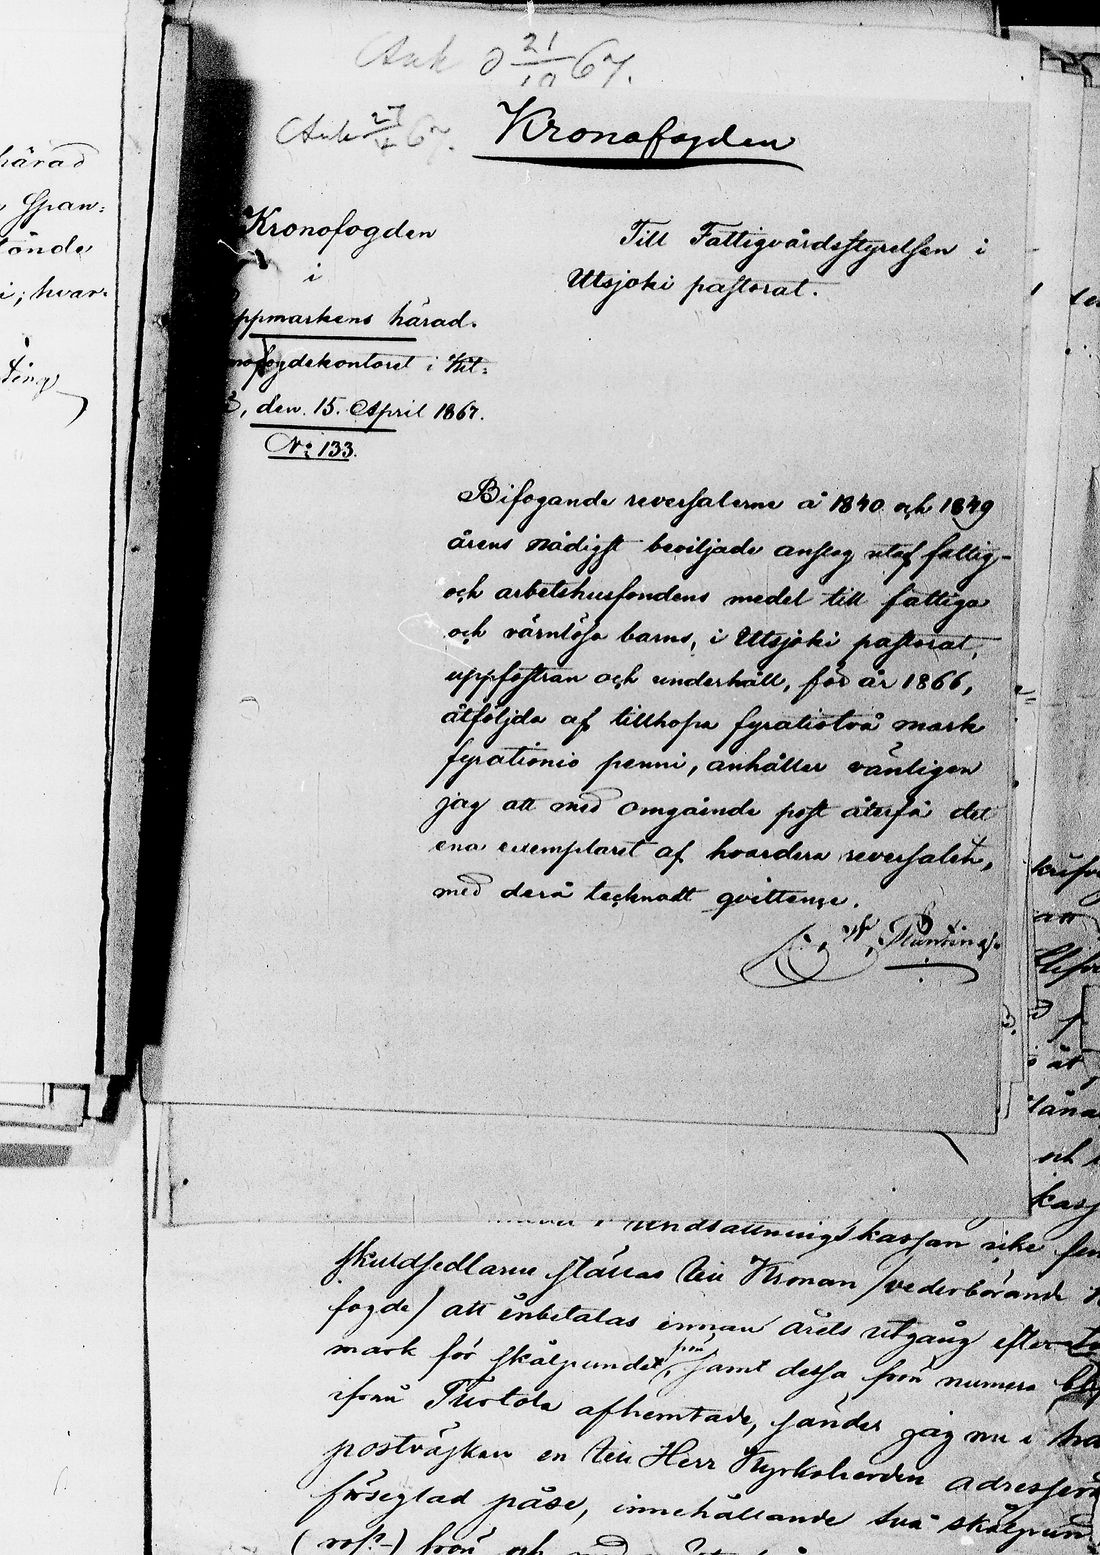 Ank d 21/10 67.
Ank 27/4 67.
Kronofogden
Kronofogden
i
ppmarkens härad.
nofogdekontoret i Kit-
, den 15. April 1867.
No 133.
Till Fattigvårdsstyrelsen i
Utsjoki pastorat.
Bifogande reversalerne å 1840 och 1849
årens nådigst beviljade anslag utaf fattig-
och arbetshusfondens medel till fattiga
och värnlösa barns, i Utsjoki pastorat,
uppfostran och underhåll, för år 1866,
åtföljda af tillhopa fyratiotvå mark
fyrationio penni, anhåller vänligen
jag att med omgående post återfå det
ena exemplaret af hvardera reversalet,
med derå tecknadt qvittence.
härad
Span-
i; hvar-
undsättningskassan
skuldsedlarne ställas till Kronan /vederbörande
fogde/ att inbetalas innan årets utgång efter
mark för skålpundet, samt dessa frön numera
ifrån Turtola afhemtade, sänder jag nu i
postväskan en till Herr Kyrkoherden
förseglad påse, innehållande två skålpund
frön och med
och